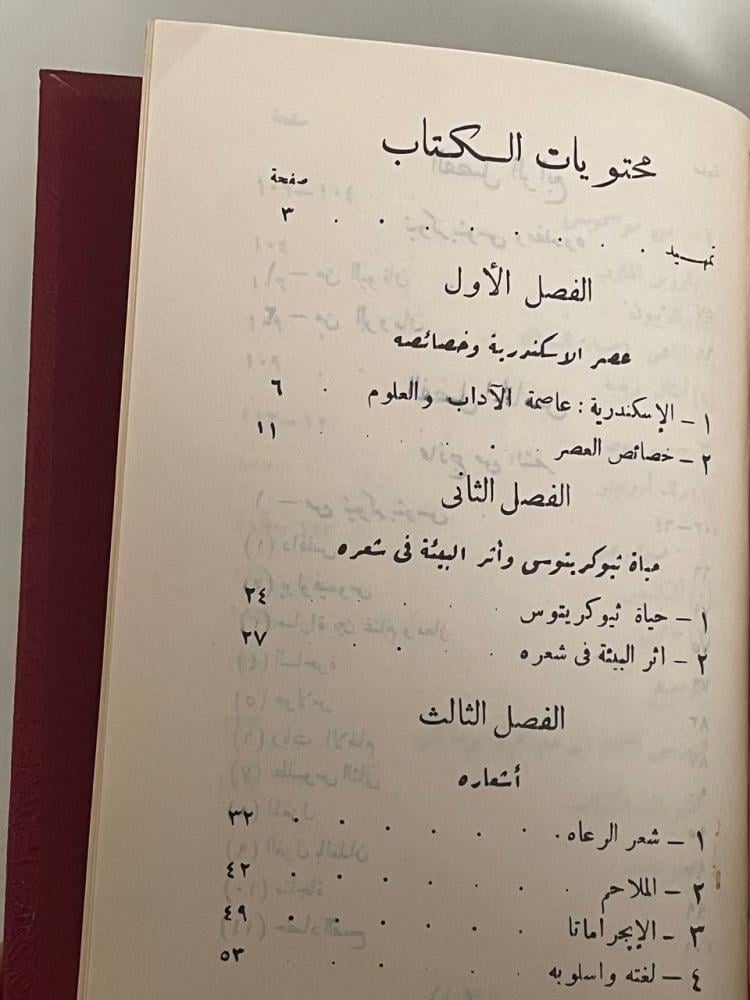 محتويات الكتاب
صفحة
تمهيد . . . . . . . ٣
الفصل الأول
عصر الاسكندرية وخصائصه
١ – الإسكندرية : عاصمة الآداب والعلوم . ٦
٢ – خصائص العصر . . . . ١١
الفصل الثانى
حياة ثيوكريتوس وأثر البيئة فى شعره
١ – حياة ثيوكريتوس . . . . ٢٤
٢ – اثر البيئة فى شعره . . . . ٢٧
الفصل الثالث
أشعاره
١ – شعر الرعاه . . . . . . . ٣٢
٢ – الملاحم . . . . . . ٤٢
٣ – الإيجراماتا . . . . . . ٤٩
٤ – لغته واسلوبه . . . . . ٥٣